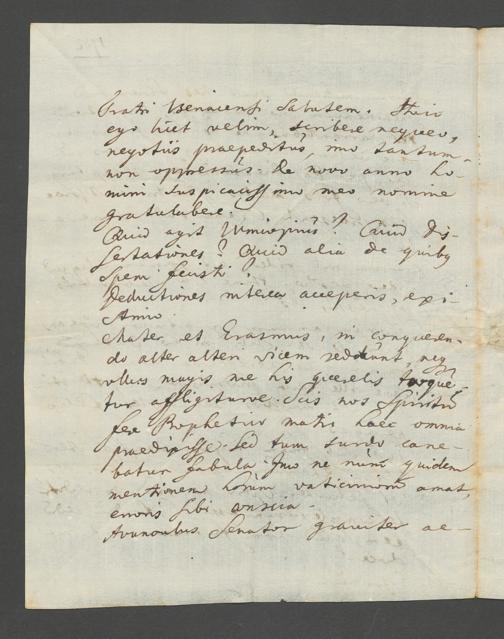 Fratri Isenacensi Salutem. Thrio
ego licet velim, scribere nequeo,
negotiis praepeditus imo tantum-
non oppressus. De novo anno ho-
mini suspicacissimo meo nomine
gratulabere.
Quid agit ? Quid Dis-
sertationes? Quid alia de quibus
spem fecisti?
Deductiones interea acceperis, exi-
stimo.
Mater et Erasmus, in conqueren-
do alter alteri vicem reddunt, neque
ullus magis me his querelis torque-
tur affligiturve. Scis nos Spiritu
fere Prophetico matri haec omnia
praedixisse. Sed tum surdo cane-
batur fabula. Imo ne nunc quidem
mentionem horum vaticiniorum amat,
erroris sibi conscia.
Avunculus Senator graviter ae-